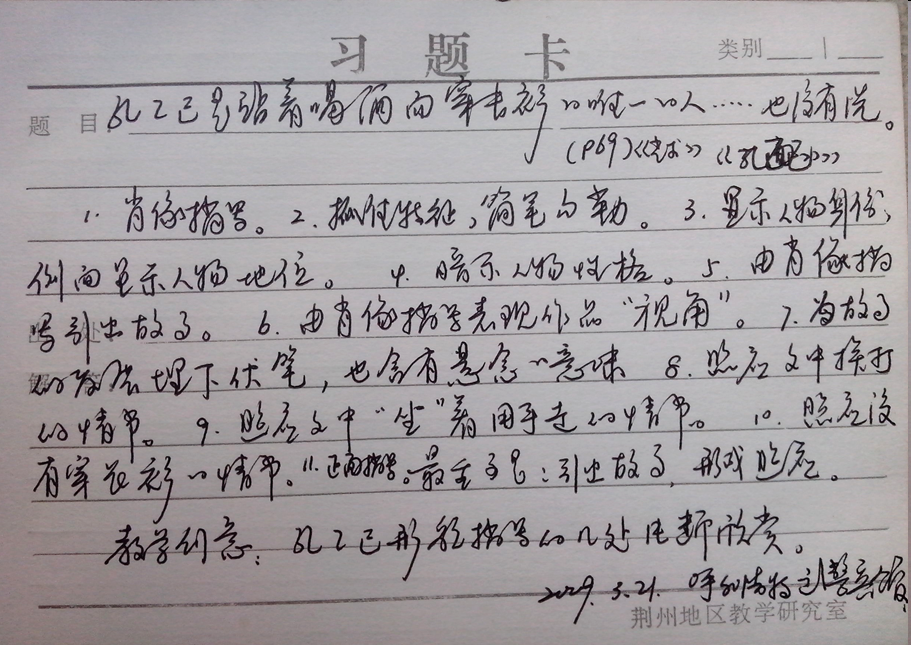 习题卡
类别
题目 孔乙己是站着喝酒而穿长衫的唯一的人……也没有洗。
(P69) 《孔乙己》
1. 肖像描写。2. 抓住特征,简笔勾勒。3. 显示人物身份,
侧面显示人物地位。 4. 暗示人物性格。5. 由肖像描
写引出故事。 6. 由肖像描写表现作品“视角”。 7. 为故事
的发展埋下伏笔,也含有悬念的意味 8. 照应文中挨打
的情节。 9. 照应文中“坐”着用手走的情节。 10. 照应没
有穿长衫的情节。11. 正面描写。最主要是:引出故事,形成照应。
教学创意:孔乙己形象描写的几处片断欣赏。
5.21. 呼和浩特
荆州地区教学研究室